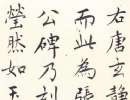 右唐玄静
而此為張
公碑乃刻
瑩然如玉